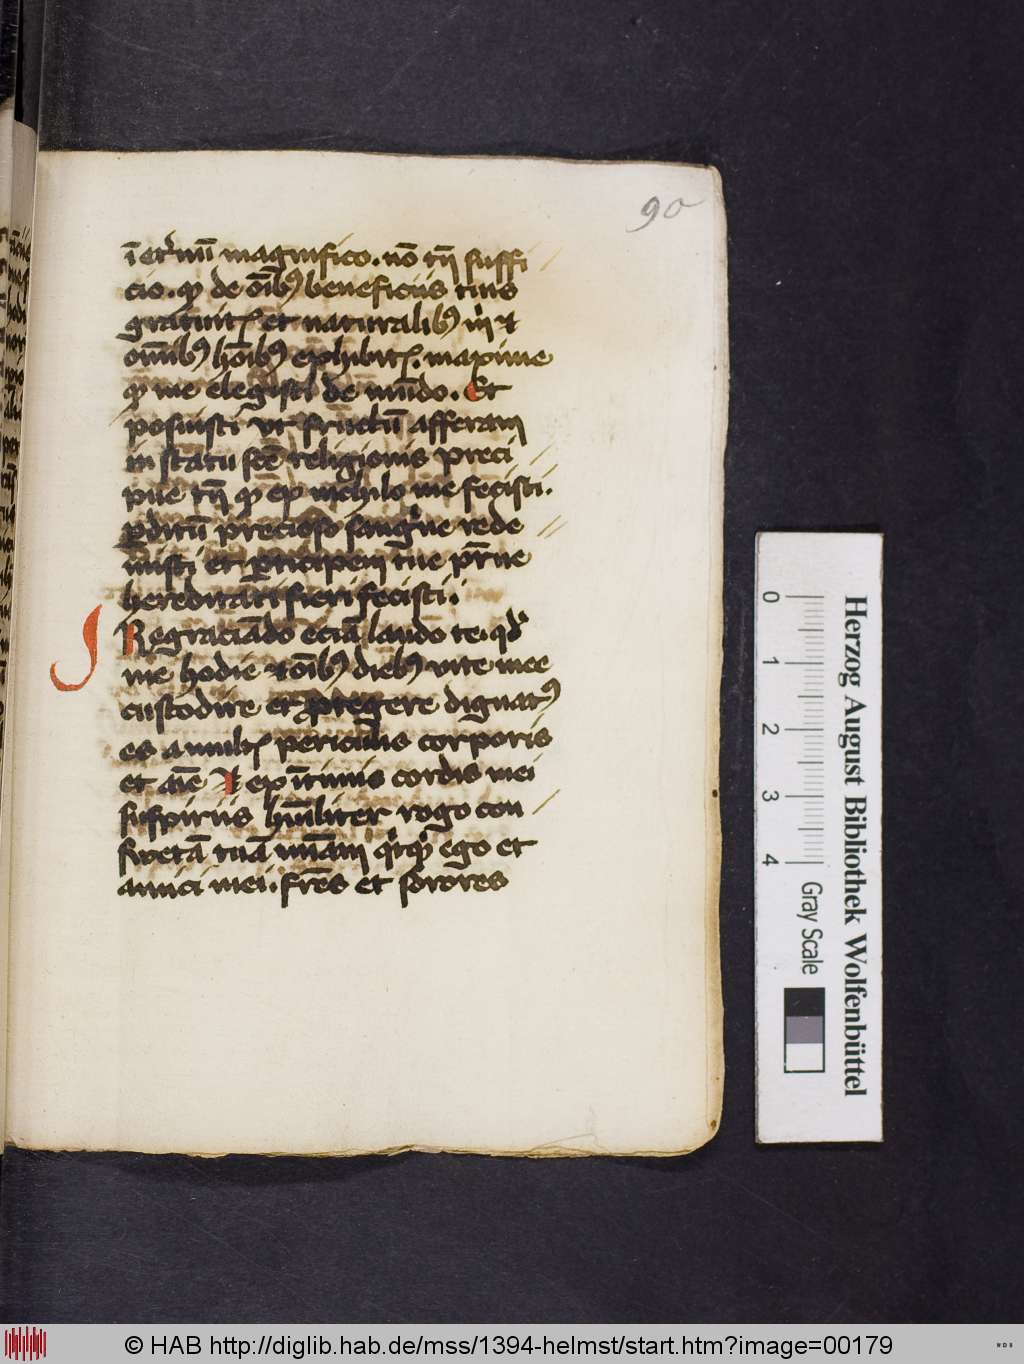 90
ī et̕nū magnifico. nō tn̄ suffi
cio. qꝫ de oībꝰ beneficiis tuis
gratuitꝭ et naturalibꝰ m̄ et
omībꝰ hoībꝰ exhibitꝭ. maxime
qꝫ me elegisti de mūdo. Et
posuisti vt fructū afferam
in statu scē religionis preci
pue tn̄ qꝫ ex nichilo me fecisti.
ꝑditū precioso sangͥne rede
misti et ꝑticipem tue pr̄ne
hereditati fieri fecisti.
Regraciādo eciā laudo te. qd̕
me hodie et oībꝰ diebꝰ vite mee
custodire et ꝓtegere dignatꝰ
es a multꝭ periculis corporis
et aīe Et ex ītimis cordis mei
suspiriis hūiliter rogo con
swetā tuā mīam qͥtqͥd ego et
amici mei. fr̄es et sorores
Herzog August Bibliothek Wolfenbüttel
0 1 2 3 4
Gray Scale
© HAB http://diglib.hab.de/mss/1394-helmst/start.htm?image=00179